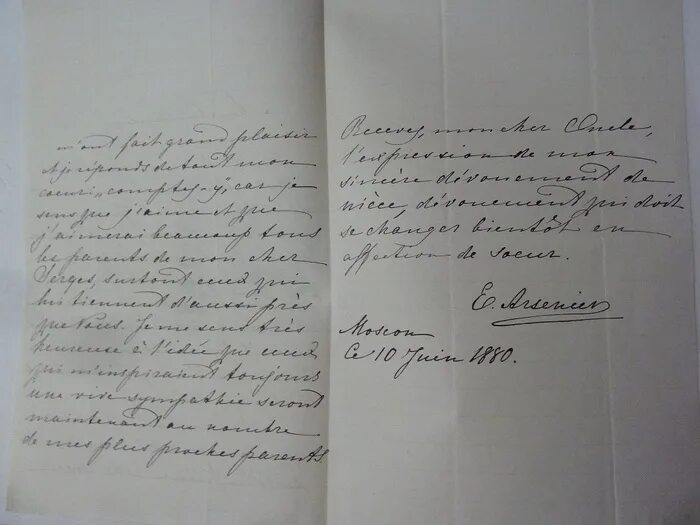 m'ont fait grand plaisir
et je réponds de tout mon
coeur: „comptez-y", car je
sens que j'aime et que
j'aimerai beaucoup tous
les parents de mon cher
Serges, surtout ceux qui
lui tiennent d'aussi près
que Vous. Je me sens très
heureuse à l'idée que ceux
qui m'inspiraient toujours
une vive sympathie seront
maintenant au nombre
de mes plus proches parents.
Recevez, mon cher Oncle,
l'expression de mon
sincère dévouement de
nièce, dévouement qui doit
se changer bientôt en
affection de soeur.
E. Arseniew
Moscou
Ce 10 Juin 1880.